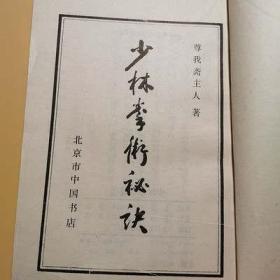 尊我斋主人 著
少林拳術秘訣
北京市中国书店